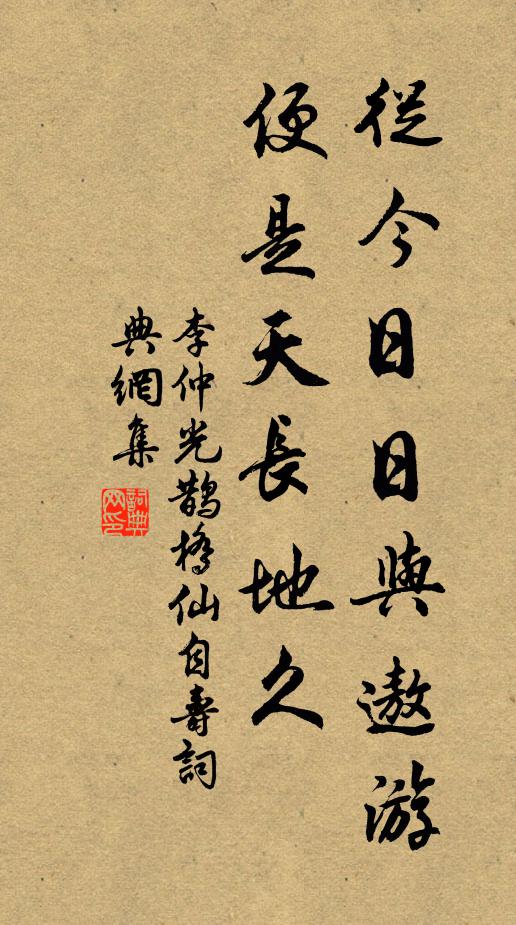 從今日日與遨游
便是天長地久
李仲光鵲橋仙自壽詞
典網集
詞典网印